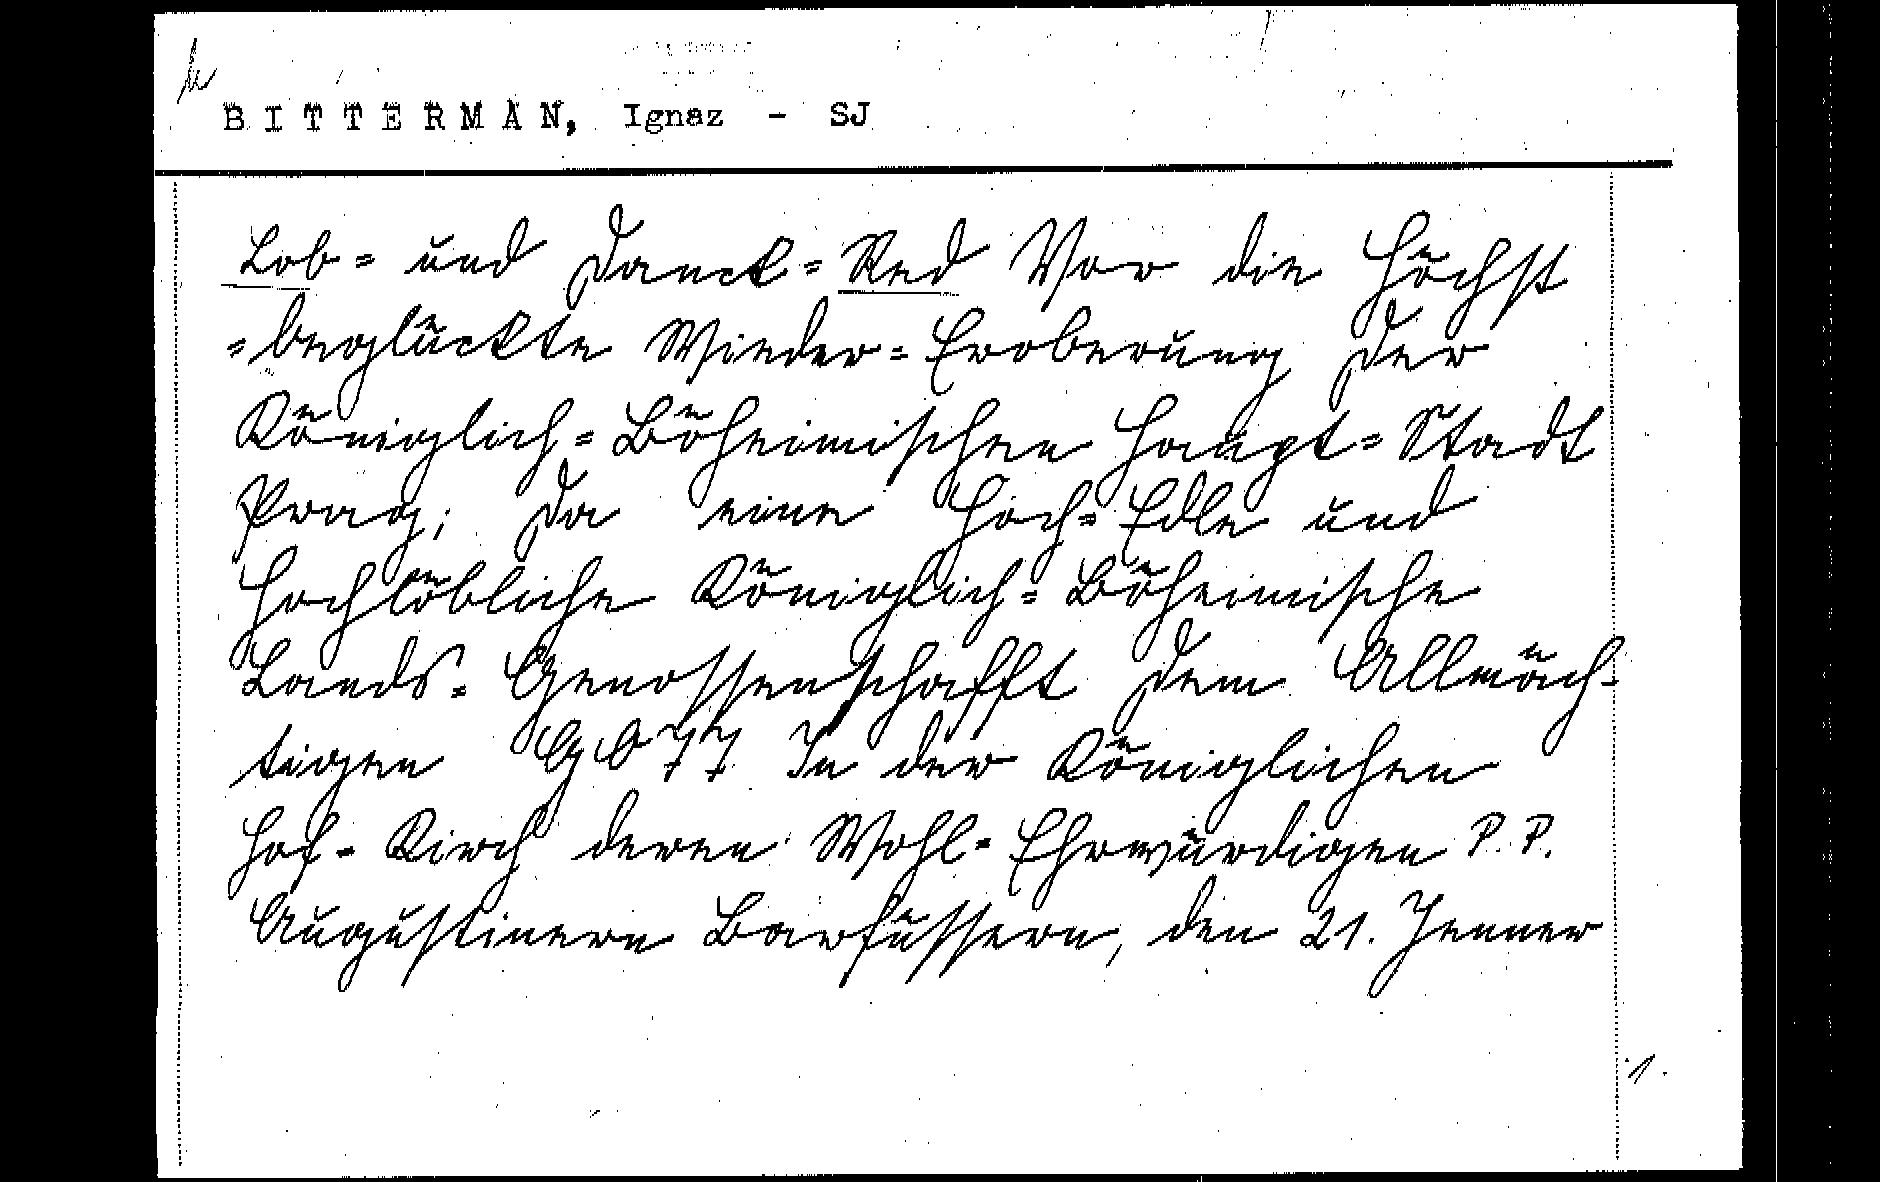 BITTERMAN, Ignaz - SJ
Lob= und Danck=Red Vor die Höchst
=beglückte Wieder=Eroberung Der
Königlich=Böheimischen Haupt=Stadt
Prag; Da eine Hoch=Edle und
Hochlöbliche Königlich=Böheimische
Lands=Genossenschafft Dem Allmäch-
tigen GOTT In der Königlichen
Hof=Kirch deren Wohl=Ehrwürdigen P.P.
Augustinern Barfüssern, den 21. Jenner
1.